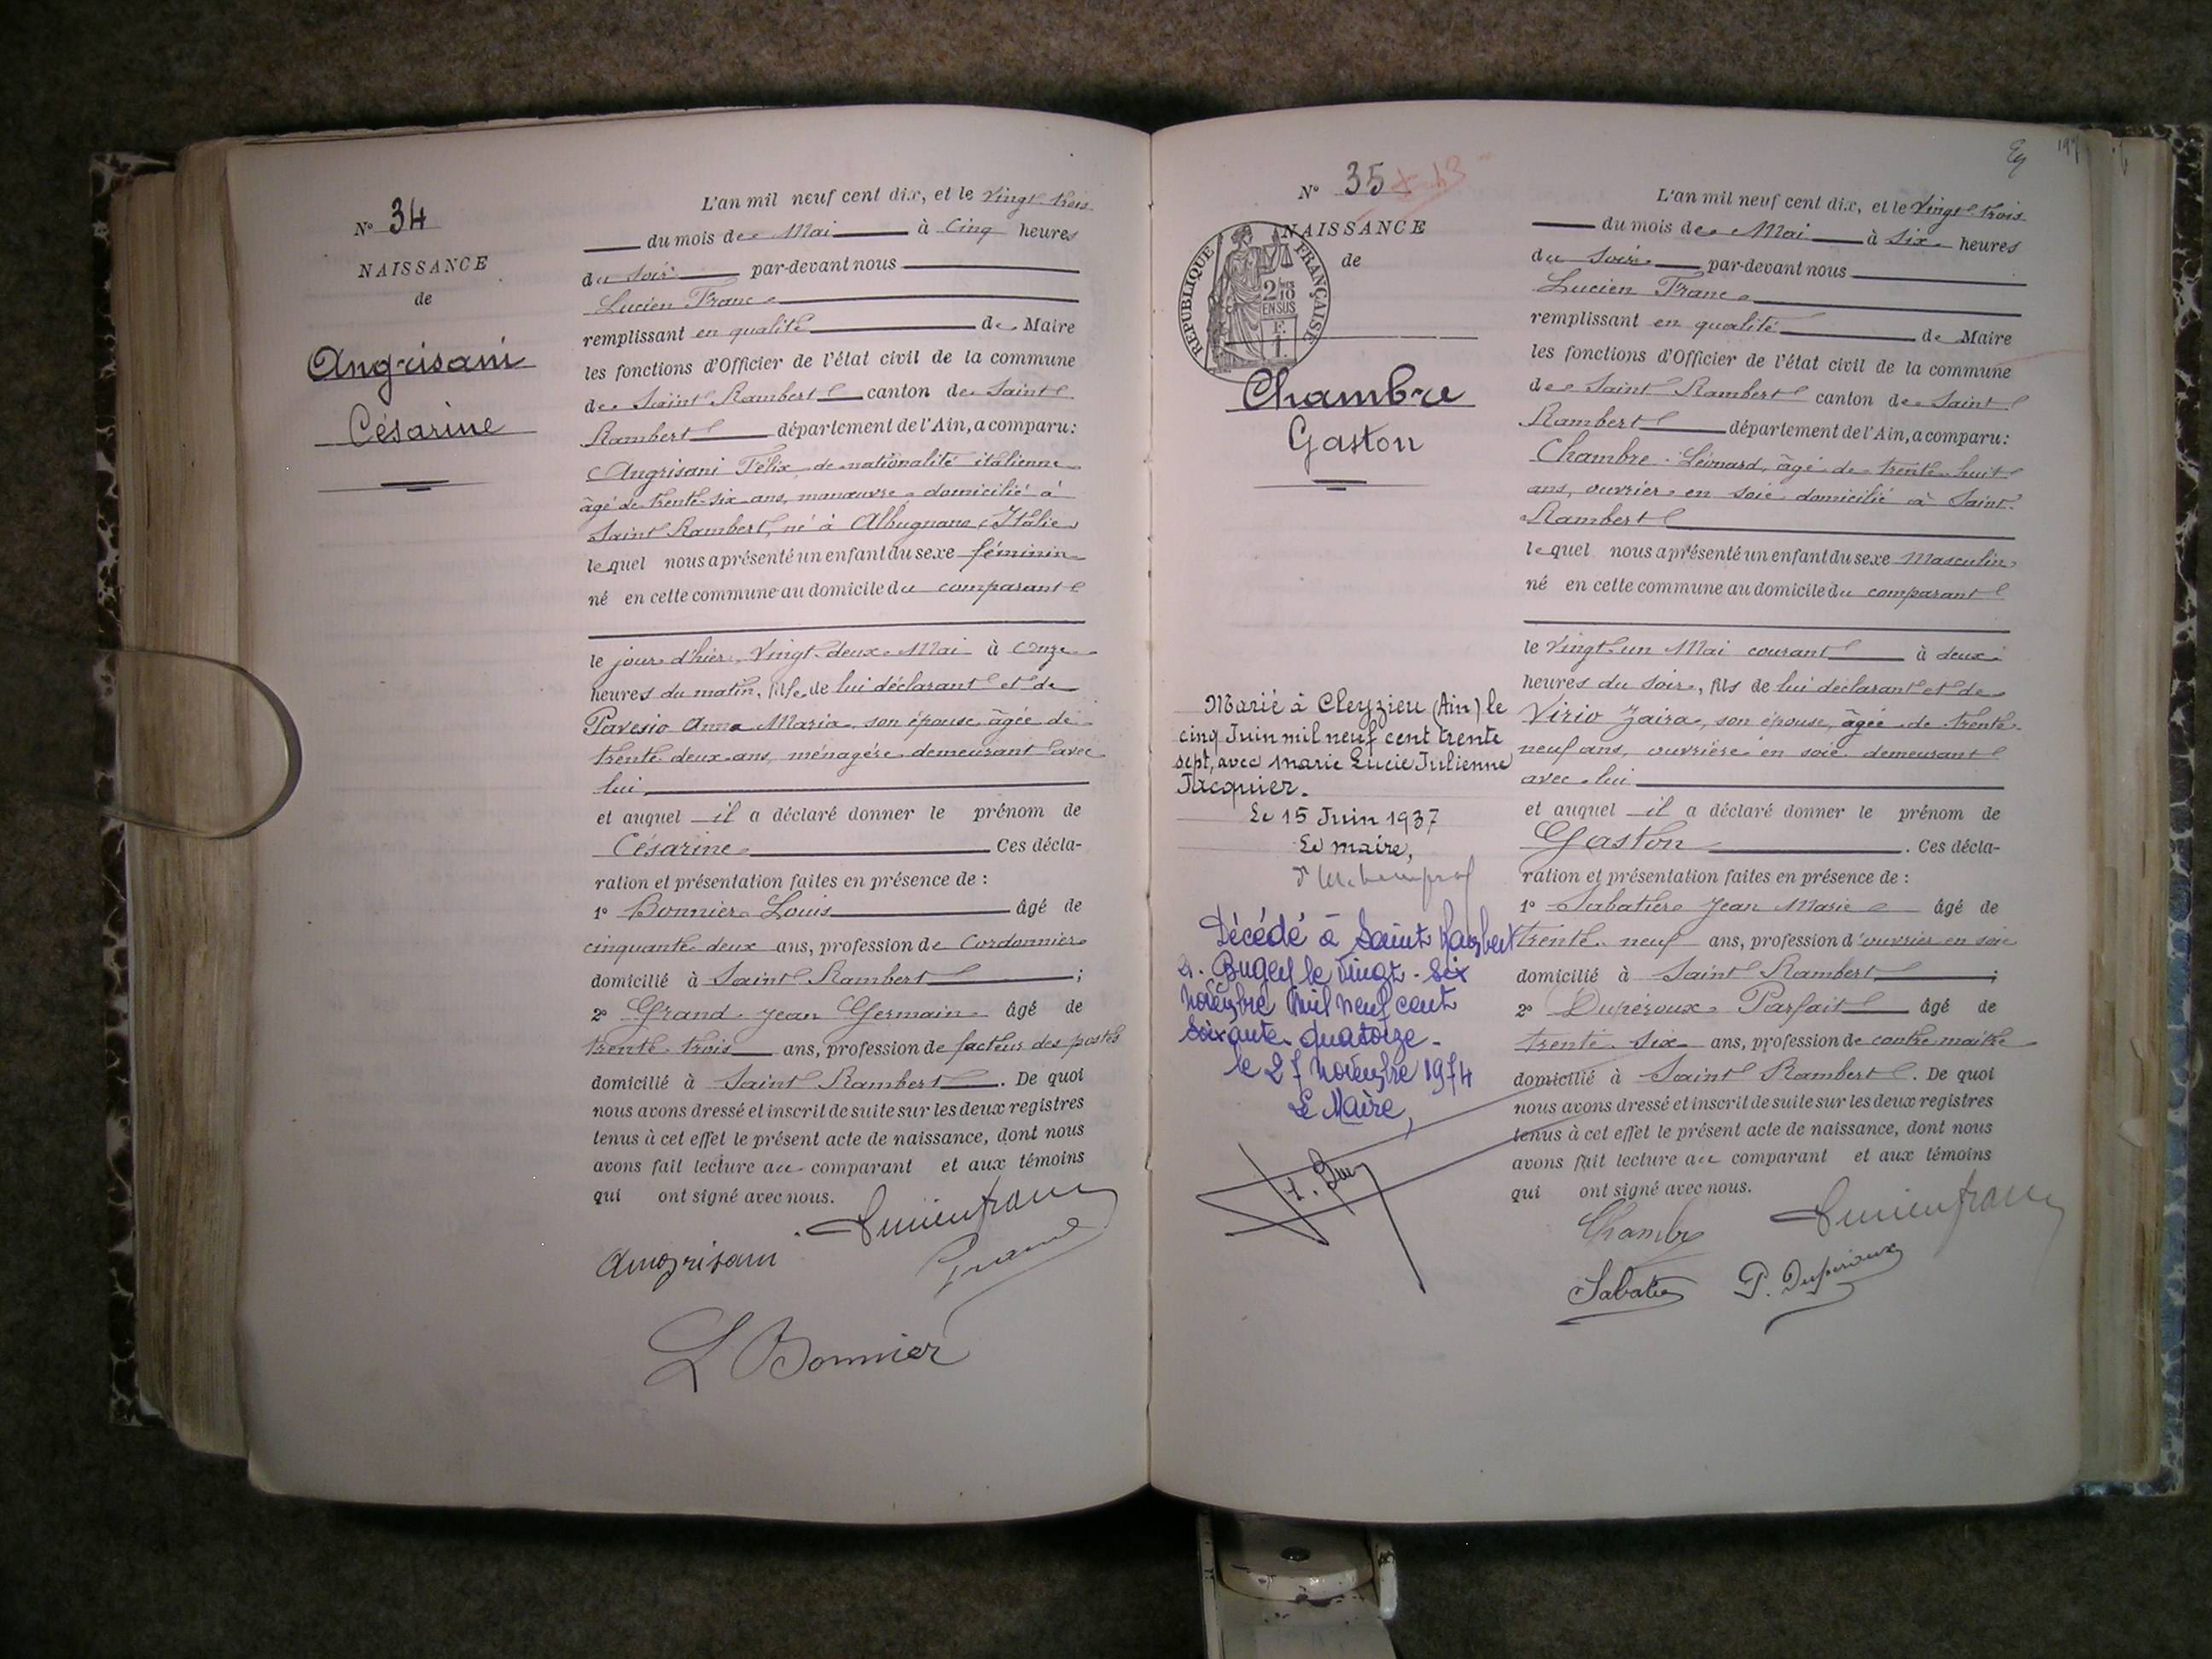 N° 34
NAISSANCE
de
Angrisani
Césarine
L'an mil neuf cent dix, et le vingt trois
du mois de Mai à cinq heures
du soir par-devant nous
Lucien Franc
remplissant en qualité de Maire
les fonctions d'Officier de l'état civil de la commune
de Saint Rambert canton de Saint
Rambert département de l'Ain, a comparu:
Angrisani Félix de nationalité italienne
âgé de trente-six ans, manœuvre domicilié à
Saint Rambert, né à Albugnano (Italie)
lequel nous a présenté un enfant du sexe féminin
né en cette commune au domicile du comparant
le jour d'hier, vingt-deux Mai à onze
heures du matin, fille de lui déclarant et de
Pavesio Anna Maria, son épouse, âgée de
trente deux ans, ménagère demeurant avec
lui
et auquel il a déclaré donner le prénom de
Césarine Ces décla-
ration et présentation faites en présence de :
1° Bonnier Louis âgé de
cinquante deux ans, profession de Cordonnier
domicilié à Saint Rambert ;
2° Grand Jean Germain âgé de
trente-trois ans, profession de facteur des postes
domicilié à Saint Rambert. De quoi
nous avons dressé et inscrit de suite sur les deux registres
tenus à cet effet le présent acte de naissance, dont nous
avons fait lecture au comparant et aux témoins
qui ont signé avec nous.
Lucien Franc
Angrisani Grand
L Bonnier
N° 35
NAISSANCE
de
REPUBLIQUE FRANÇAISE
2/10
EN SUS
Chambre
Gaston
Marié à Cleyzieu (Ain) le
cinq Juin mil neuf cent trente
sept, avec Marie Lucie Julienne
Jacquier.
Le 15 Juin 1937
Le maire,
Décédé à Saint Rambert
en Bugey le vingt-six
novembre mil neuf cent
soixante quatorze.
le 27 novembre 1974
Le Maire,
L'an mil neuf cent dix, et le vingt-trois
du mois de Mai à six heures
du soir par-devant nous
Lucien Franc
remplissant en qualité de Maire
les fonctions d'Officier de l'état civil de la commune
de Saint Rambert canton de Saint
Rambert département de l'Ain, a comparu:
Chambre Léonard, âgé de trente-huit
ans, ouvrier en soie domicilié à Saint
Rambert
lequel nous a présenté un enfant du sexe Masculin
né en cette commune au domicile du comparant
le vingt-un Mai courant à deux
heures du soir, fils de lui déclarant et de
Virio Zaira, son épouse, âgée de trente-
neuf ans, ouvrière en soie demeurant
avec lui
et auquel il a déclaré donner le prénom de
Gaston . Ces décla-
ration et présentation faites en présence de :
1° Sabatier Jean Marie âgé de
trente-neuf ans, profession d'ouvrier en soie
domicilié à Saint Rambert ;
2° Dupéroux Parfait âgé de
trente-six ans, profession de contre maître
domicilié à Saint Rambert. De quoi
nous avons dressé et inscrit de suite sur les deux registres
tenus à cet effet le présent acte de naissance, dont nous
avons fait lecture au comparant et aux témoins
qui ont signé avec nous.
Chambre Lucien Franc
Sabatier P. Dupéroux